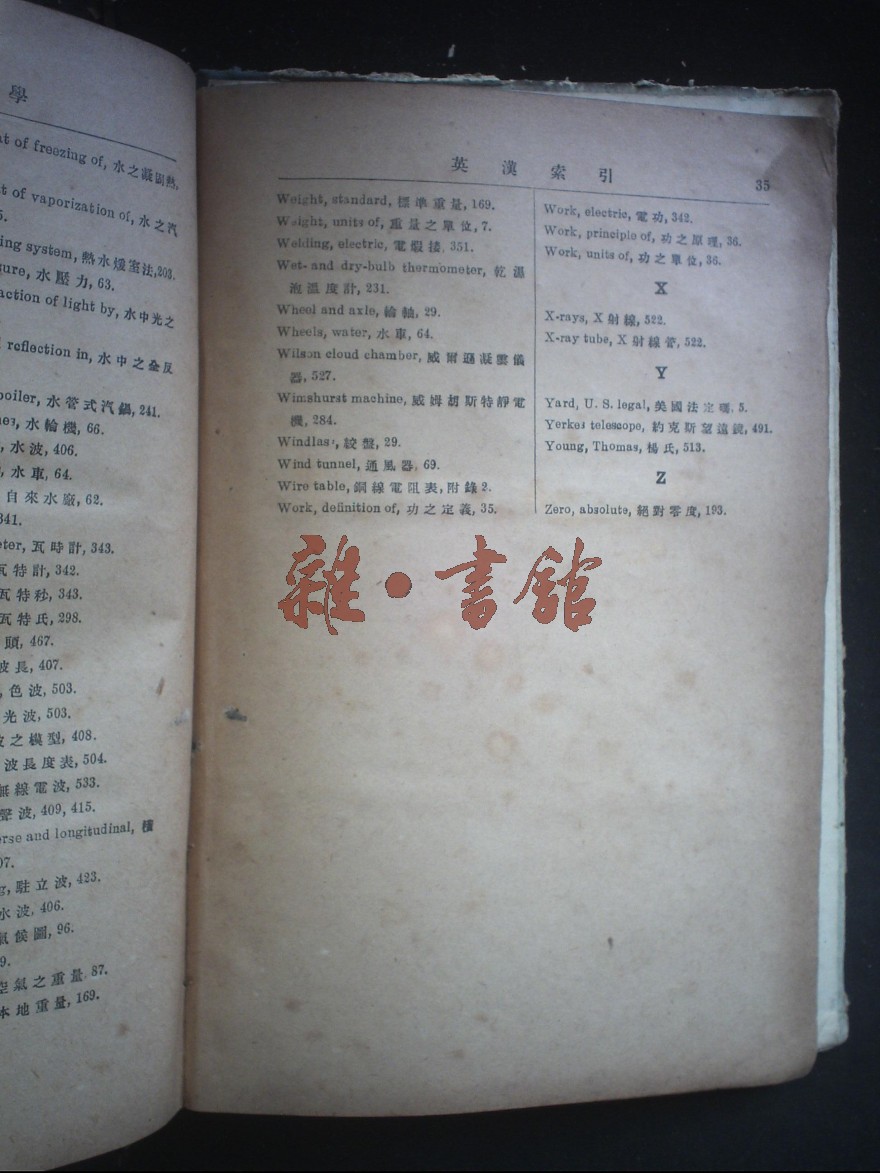 學
of freezing of, 水之凝固熱,
of vaporization of, 水之汽
ing system, 熱水煖室法, 203.
水壓力, 63.
action of light by, 水中光之
reflection in, 水中之全反
boiler, 水管式汽鍋, 241.
水輪機, 66.
水波, 406.
水車, 64.
自來水廠, 62.
341.
eter, 瓦時計, 343.
瓦特計, 342.
瓦特秒, 343.
瓦特氏, 298.
頭, 467.
波長, 407.
色波, 503.
光波, 503.
之模型, 408.
波長度表, 504.
無線電波, 533.
聲波, 409, 415.
erse and longitudinal, 橫
07.
駐立波, 423.
水波, 406.
氣候圖, 96.
9.
空氣之重量, 87.
本地重量, 169.
英漢索引 35
Weight, standard, 標準重量, 169.
Weight, units of, 重量之單位, 7.
Welding, electric, 電煅接, 351.
Wet- and dry-bulb thermometer, 乾濕
泡溫度計, 231.
Wheel and axle, 輪軸, 29.
Wheels, water, 水車, 64.
Wilson cloud chamber, 威爾遜凝雲儀
器, 527.
Wimshurst machine, 威姆胡斯特靜電
機, 284.
Windlass, 絞盤, 29.
Wind tunnel, 通風器, 69.
Wire table, 銅線電阻表, 附錄 2.
Work, definition of, 功之定義, 35.
Work, electric, 電功, 342.
Work, principle of, 功之原理, 36.
Work, units of, 功之單位, 36.
X
X-rays, X 射線, 522.
X-ray tube, X 射線管, 522.
Y
Yard, U. S. legal, 美國法定碼, 5.
Yerkes telescope, 約克斯望遠鏡, 491.
Young, Thomas, 楊氏, 513.
Z
Zero, absolute, 絕對零度, 193.
雜·書館